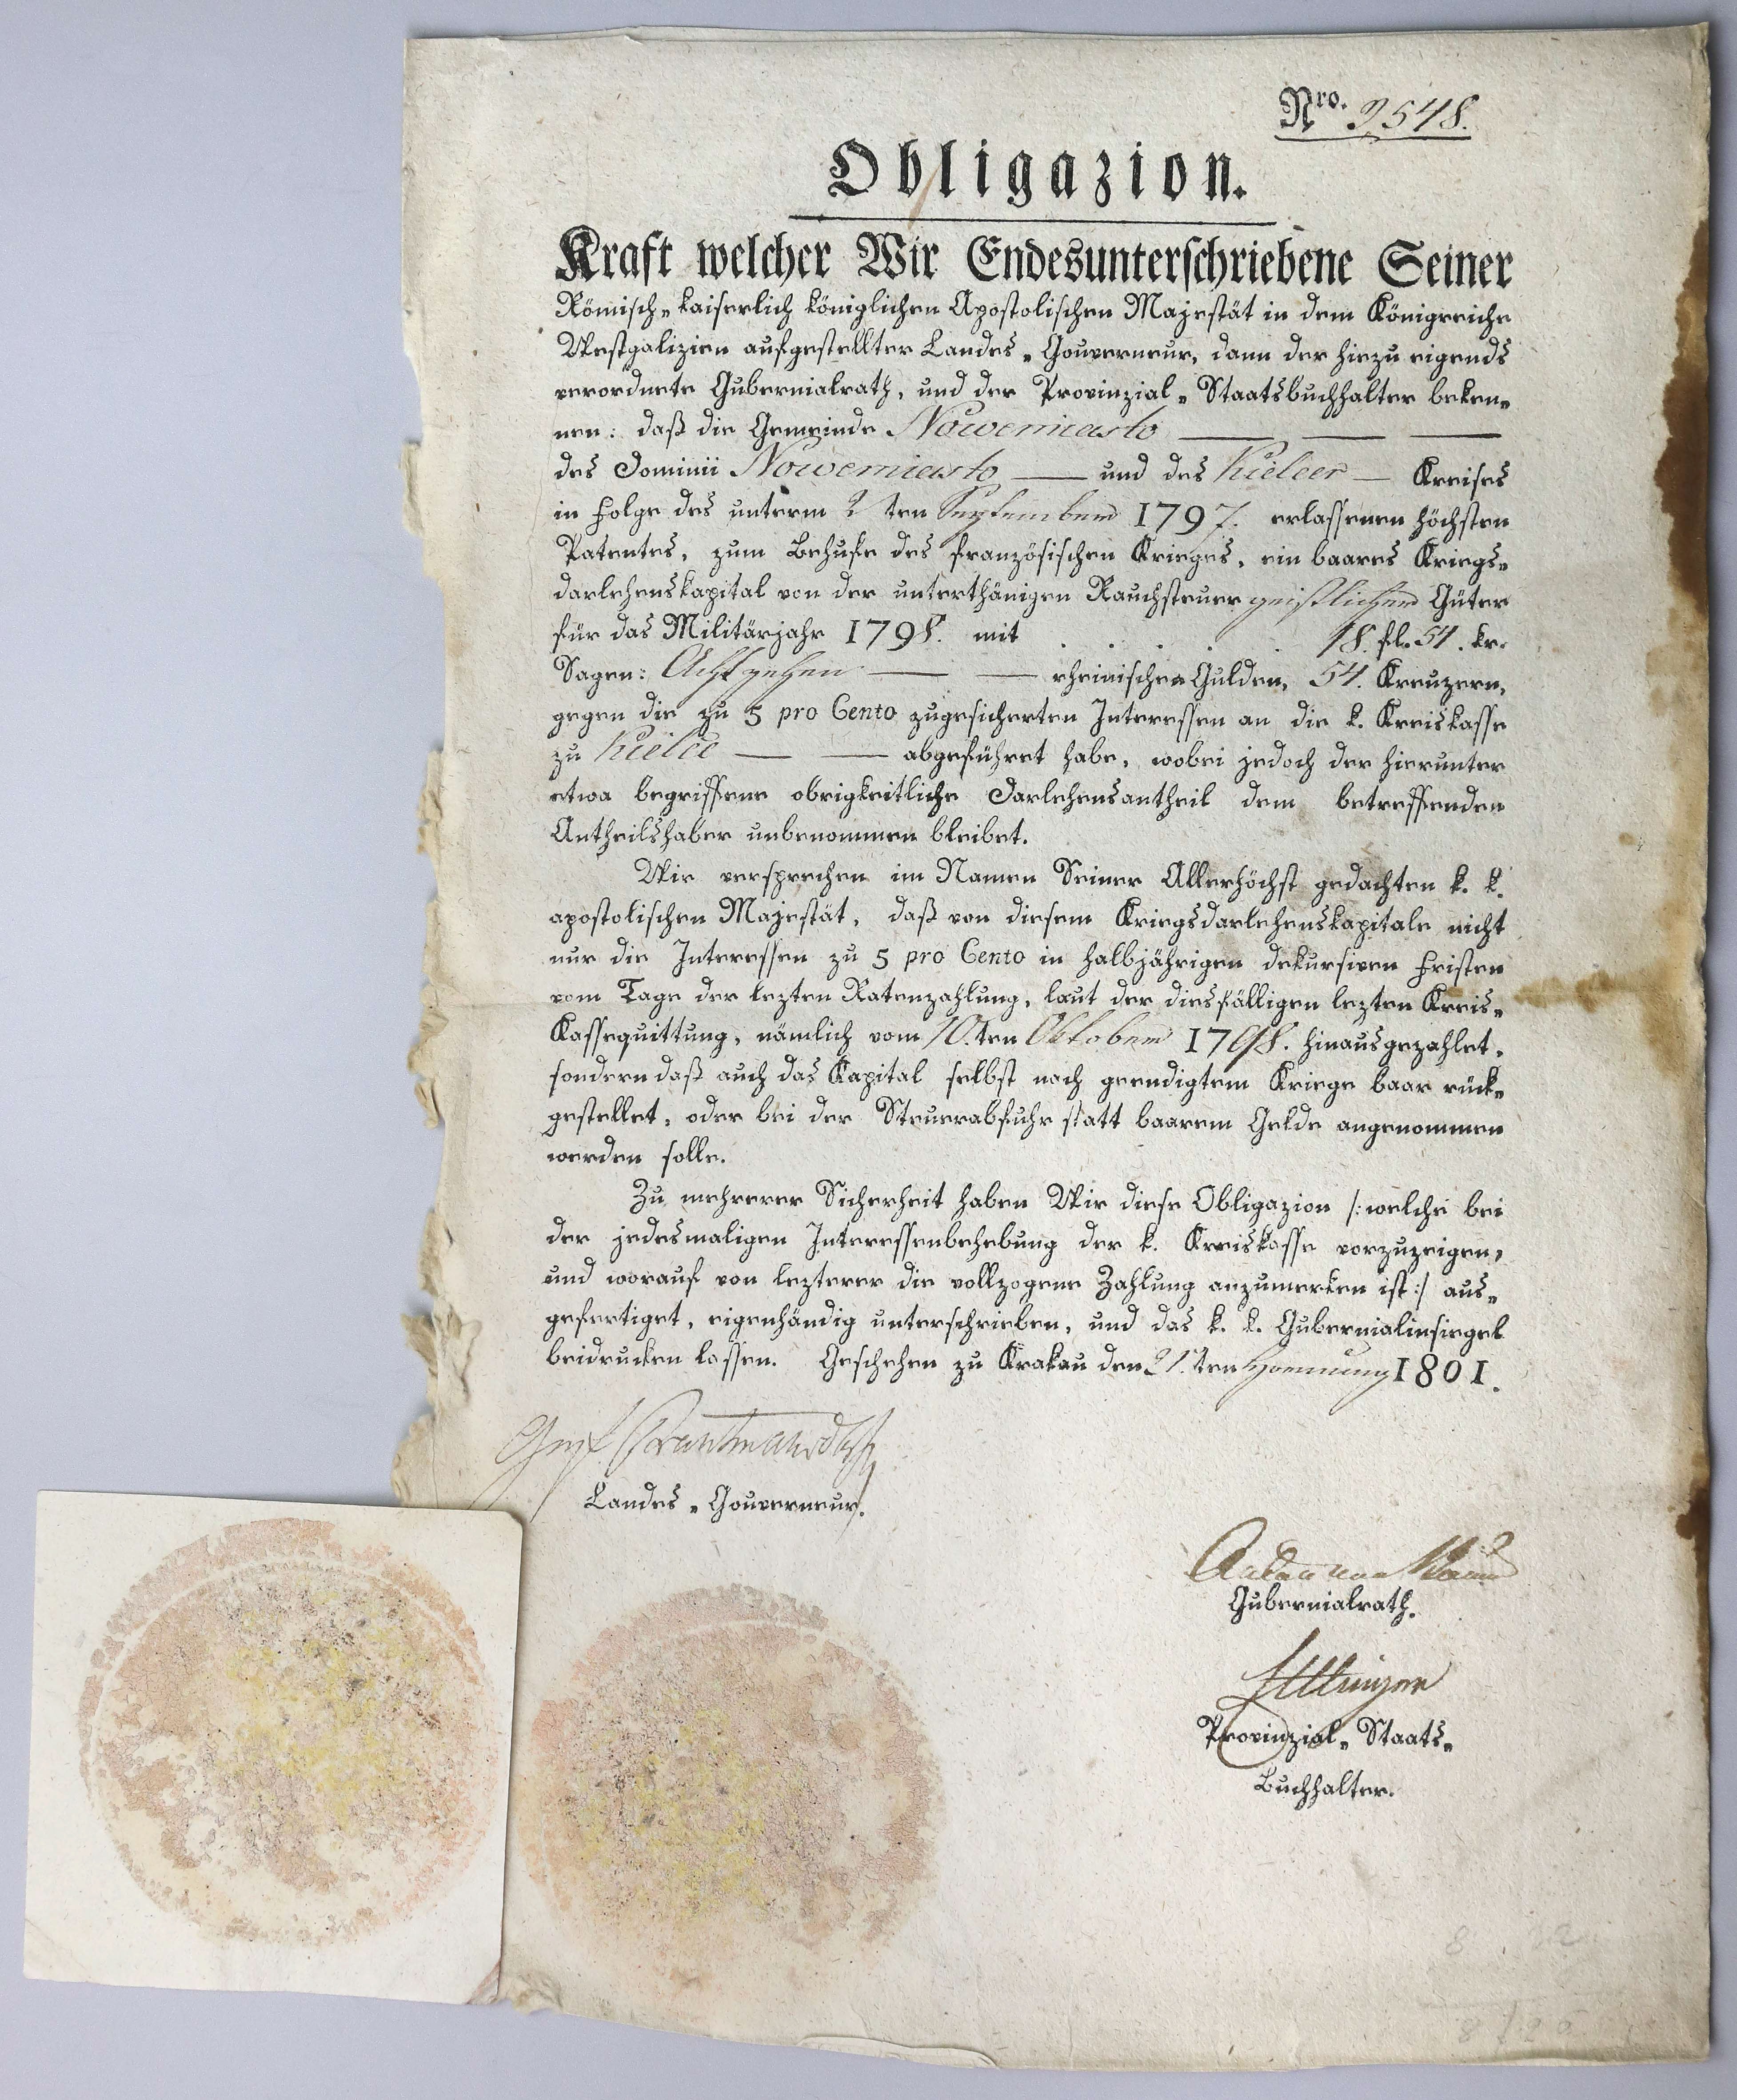 Nro. 2548.
Obligazion.
Kraft welcher Wir Endesunterschriebene Seiner
Römisch-kaiserlich königlichen Apostolischen Majestät in dem Königreiche
Westgalizien aufgestellter Landes-Gouverneur, dann der hiezu eigends
verordnete Gubernialrath, und der Provinzial-Staatsbuchhalter beken-
nen: daß die Gemeinde Nowemiasto
des Dominii Nowemiasto — und des Kielcer — Kreises
in Folge des unterm 2ten September 1797. erlassenen höchsten
Patentes, zum Behufe des französischen Krieges, ein baares Kriegs-
darlehenskapital von der unterthänigen Rauchsteuer geistlicher Güter
für das Militärjahr 1798. mit . . . . . 18. fl. 54. kr.
Sagen: Achtzehen — — rheinische Gulden, 54. Kreuzern,
gegen die zu 5 pro Cento zugesicherten Interessen an die k. Kreiskasse
zu Kielce — — abgeführet habe, wobei jedoch der hierunter
etwa begriffene obrigkeitliche Darlehensantheil dem betreffenden
Antheilshaber unbenommen bleibet.
Wir versprechen im Namen Seiner Allerhöchst gedachten k. k.
apostolischen Majestät, daß von diesem Kriegsdarlehenskapitale nicht
nur die Interessen zu 5 pro Cento in halbjährigen dekursiven Fristen
vom Tage der lezten Ratenzahlung, laut der diesfälligen lezten Kreis-
Kassequittung, nämlich vom 10.ten Oktober 1798. hinausgezahlet,
sondern daß auch das Kapital selbst nach geendigtem Kriege baar rück-
gestellet, oder bei der Steuerabfuhr statt baarem Gelde angenommen
werden solle.
Zu mehrerer Sicherheit haben Wir diese Obligazion /: welche bei
der jedesmaligen Interessenbehebung der k. Kreiskasse vorzuzeigen,
und worauf von lezterer die vollzogene Zahlung anzumerken ist :/ aus-
gefertiget, eigenhändig unterschrieben, und das k. k. Gubernialinsiegel
beidrucken lassen. Geschehen zu Krakau den 21.ten Hornung 1801.
Graf Trautmansdorf
Landes-Gouverneur.
Gubernialrath.
Provinzial-Staats-
Buchhalter.